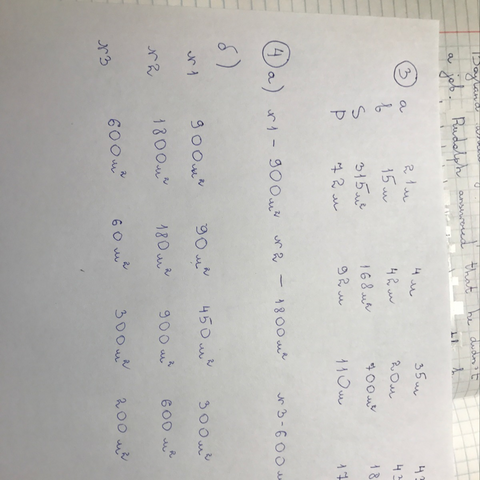 a job. Rudolph answered that he didn't
③ a 21м 4м 35м
b 15м 42м 20м
S 315м² 168м² 700м² 18
P 72м 92м 110м 17
④ а) №1 - 900м² №2 - 1800м² №3 - 600м
б)
№1 900м² 90м² 450м² 300м²
№2 1800м² 180м² 900м² 600м²
№3 600м² 60м² 300м² 200м²